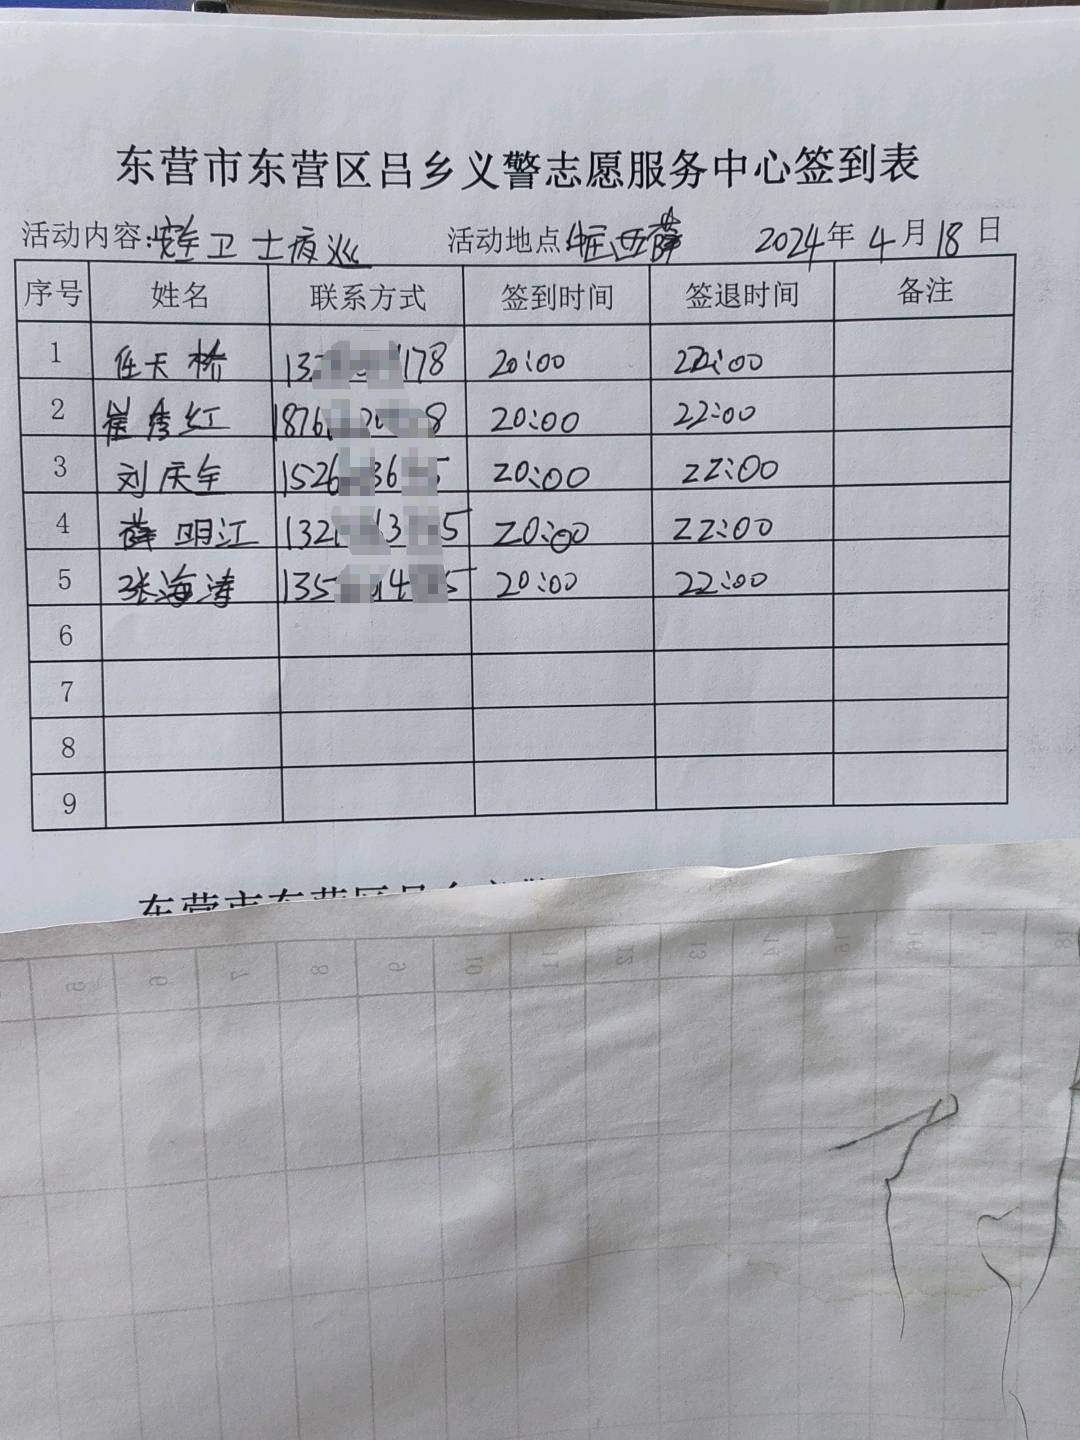 东营市东营区吕乡义警志愿服务中心签到表
活动内容: 卫士夜巡 活动地点: 西薛 2024年4月18日
序号 姓名 联系方式 签到时间 签退时间 备注
1 任天桥 13 178 20:00 22:00
2 崔秀红 1876 8 20:00 22:00
3 刘庆全 1526 36 5 20:00 22:00
4 薛明江 132 13 5 20:00 22:00
5 张海涛 135 14 5 20:00 22:00
6
7
8
9
东营市东营区吕乡义警
5 6 7 8 9 10 11 12 13 14 15 16 18